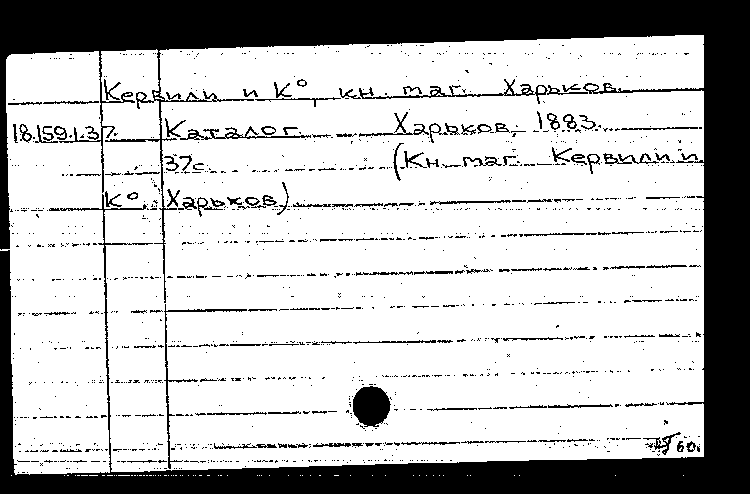 Кервили и К°, кн. маг. Харьков.
18.159.1.37. Каталог. Харьков, 1883.
37с. (Кн. маг. Кервили и
К°. Харьков)
60.